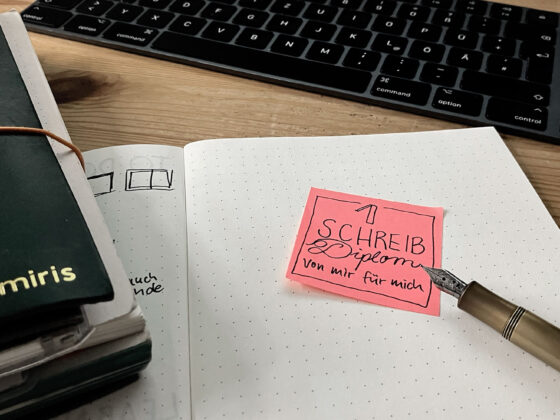 H J K L Ö Ä
Y X C V B N M
control option command
command option control
1
SCHREIB
Diplom
von mir für mich
miris
auch
nde